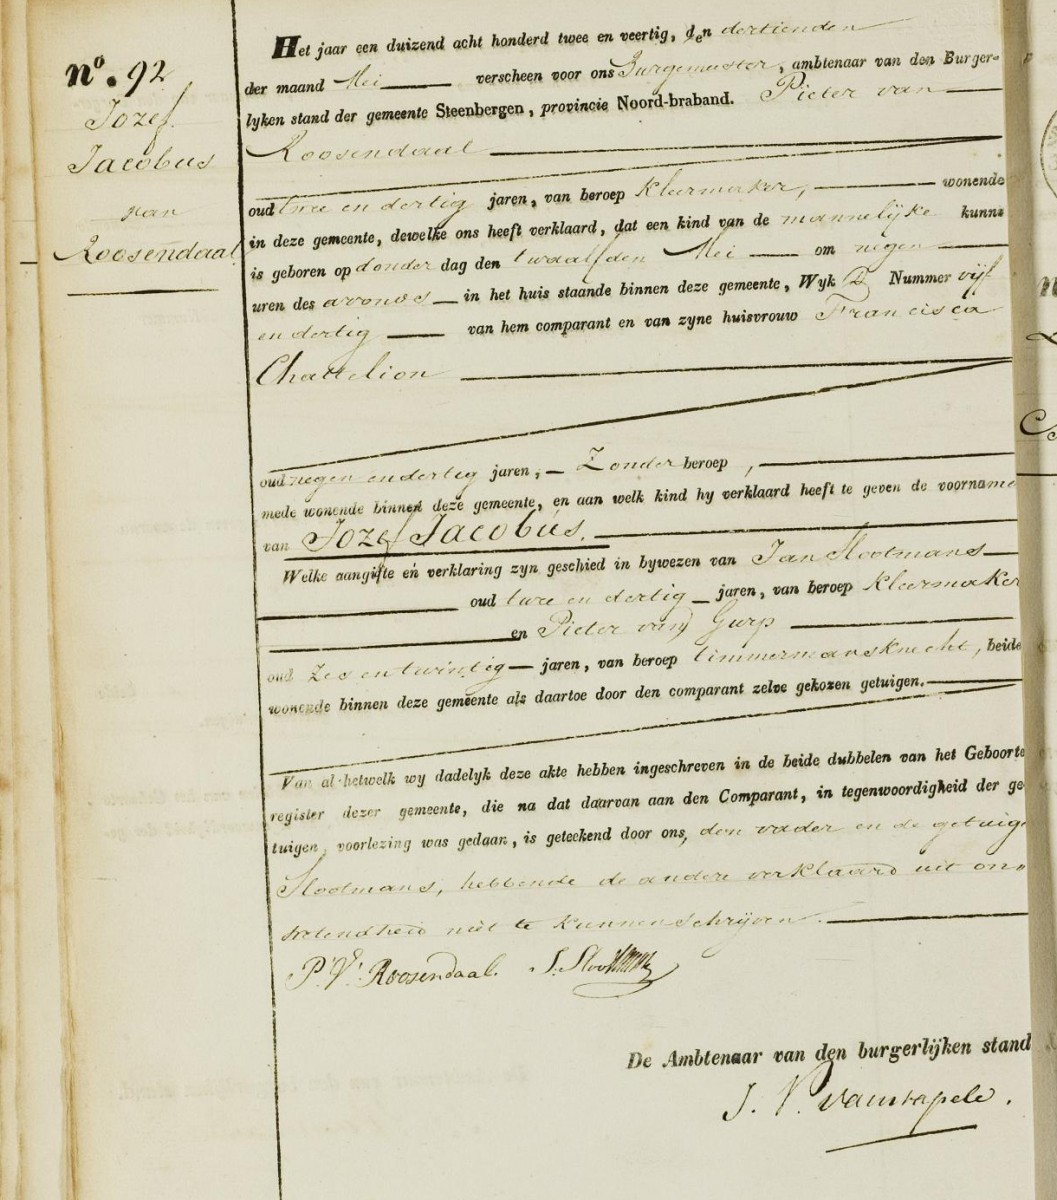 nº. 92
Jozef
Jacobus
van
Roosendaal
Het jaar een duizend acht honderd twee en veertig, den dertienden
der maand Mei verscheen voor ons Burgemeester, ambtenaar van den Burger-
lyken stand der gemeente Steenbergen, provincie Noord-braband. Pieter van
Roosendaal
oud twee en dertig jaren, van beroep kleermaker, wonende
in deze gemeente, dewelke ons heeft verklaard, dat een kind van de mannelijke kunne
is geboren op donder dag den twaalfden Mei om negen
uren des avonds in het huis staande binnen deze gemeente, Wyk D Nummer vijf
en dertig van hem comparant en van zyne huisvrouw Francisca
Chattelion
oud negen en dertig jaren, Zonder beroep,
mede wonende binnen deze gemeente, en aan welk kind hy verklaard heeft te geven de voorname
van Jozef Jacobus.
Welke aangifte en verklaring zyn geschied in bywezen van Jan Slootmans
oud twee en dertig jaren, van beroep kleermaker
en Pieter van Gurp
oud zes en twintig jaren, van beroep timmermansknecht, beide
wonende binnen deze gemeente als daartoe door den comparant zelve gekozen getuigen.
Van al hetwelk wy dadelyk deze akte hebben ingeschreven in de beide dubbelen van het Geboorte
register dezer gemeente, die na dat daarvan aan den Comparant, in tegenwoordigheid der ge-
tuigen, voorlezing was gedaan, is geteekend door ons, den vader en de getuige
Slootmans, hebbende de andere verklaard uit on-
wetendheid niet te kunnen schrijven.
P. V. Roosendaal. J. Slootmans
De Ambtenaar van den burgerlijken stand
J. V.